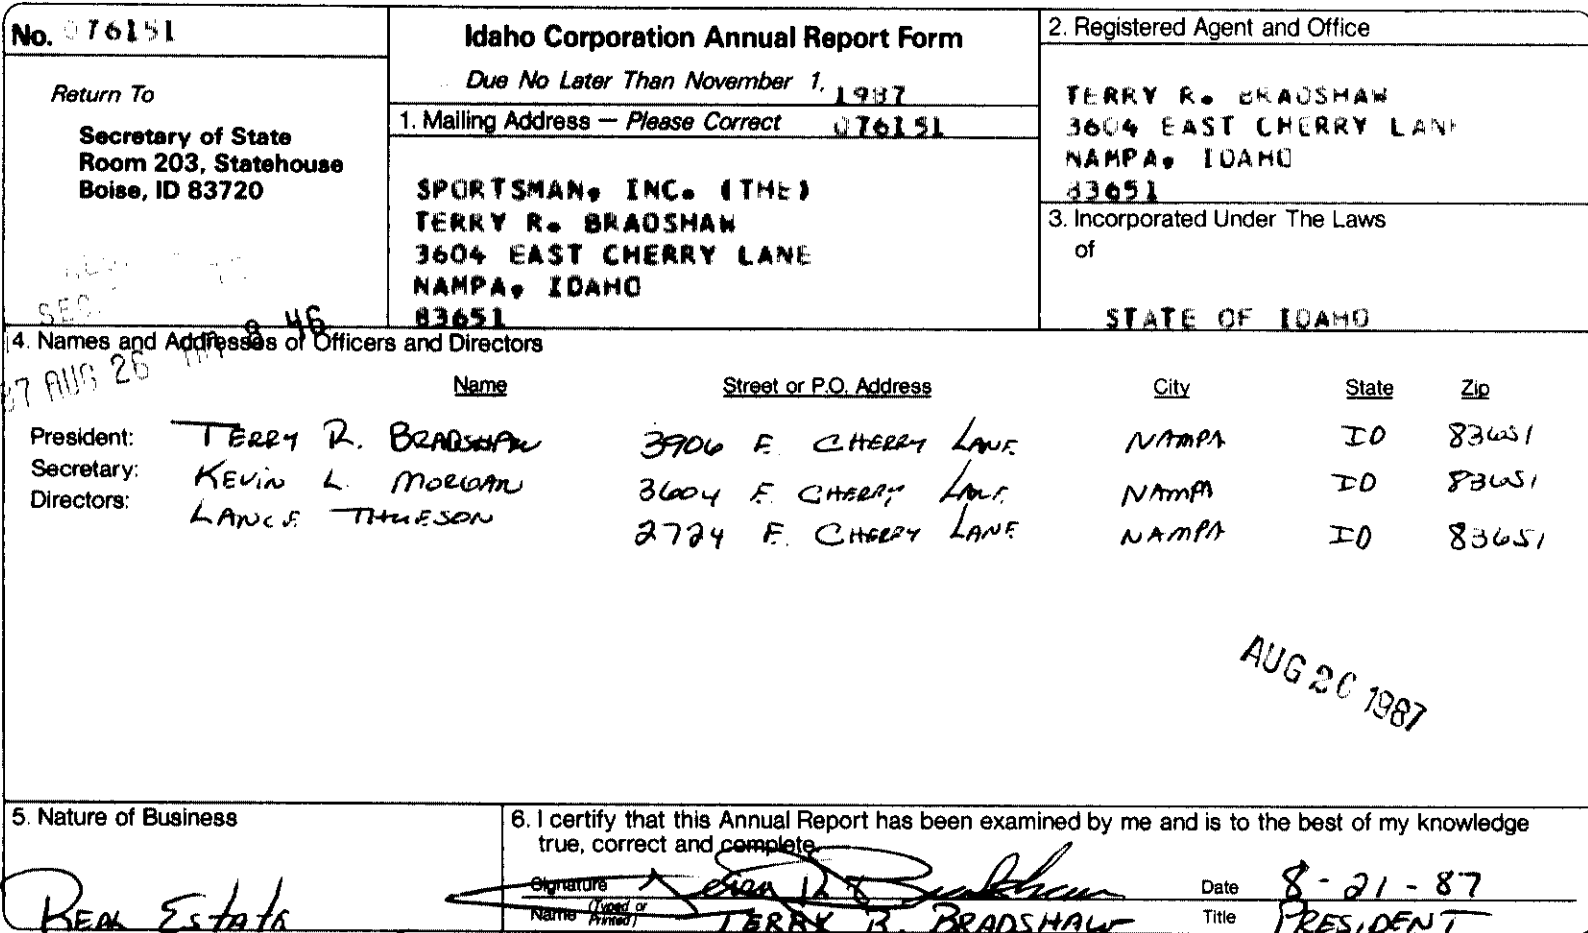 No. 076151
Idaho Corporation Annual Report Form
Due No Later Than November 1, 1987
Return To
Secretary of State
Room 203, Statehouse
Boise, ID 83720
1. Mailing Address — Please Correct 076151
SPORTSMAN, INC. (THE)
TERRY R. BRADSHAW
3604 EAST CHERRY LANE
NAMPA, IDAHO
83651
2. Registered Agent and Office
TERRY R. BRADSHAW
3604 EAST CHERRY LANE
NAMPA, IDAHO
83651
3. Incorporated Under The Laws
of
STATE OF IDAHO
SEC.
87 AUG 26 AM 8 46
4. Names and Addresses of Officers and Directors
Name Street or P.O. Address City State Zip
President: TERRY R. BRADSHAW 3906 E. CHERRY LANE NAMPA ID 83651
Secretary: KEVIN L. MORGAN 3604 E. CHERRY LANE NAMPA ID 83651
Directors: LANCE THUESON 2724 E. CHERRY LANE NAMPA ID 83651
AUG 26 1987
5. Nature of Business
REAL Estate
6. I certify that this Annual Report has been examined by me and is to the best of my knowledge
true, correct and complete.
Signature Terry R Bradshaw Date 8-21-87
Name (Typed or Printed) TERRY R. BRADSHAW Title PRESIDENT